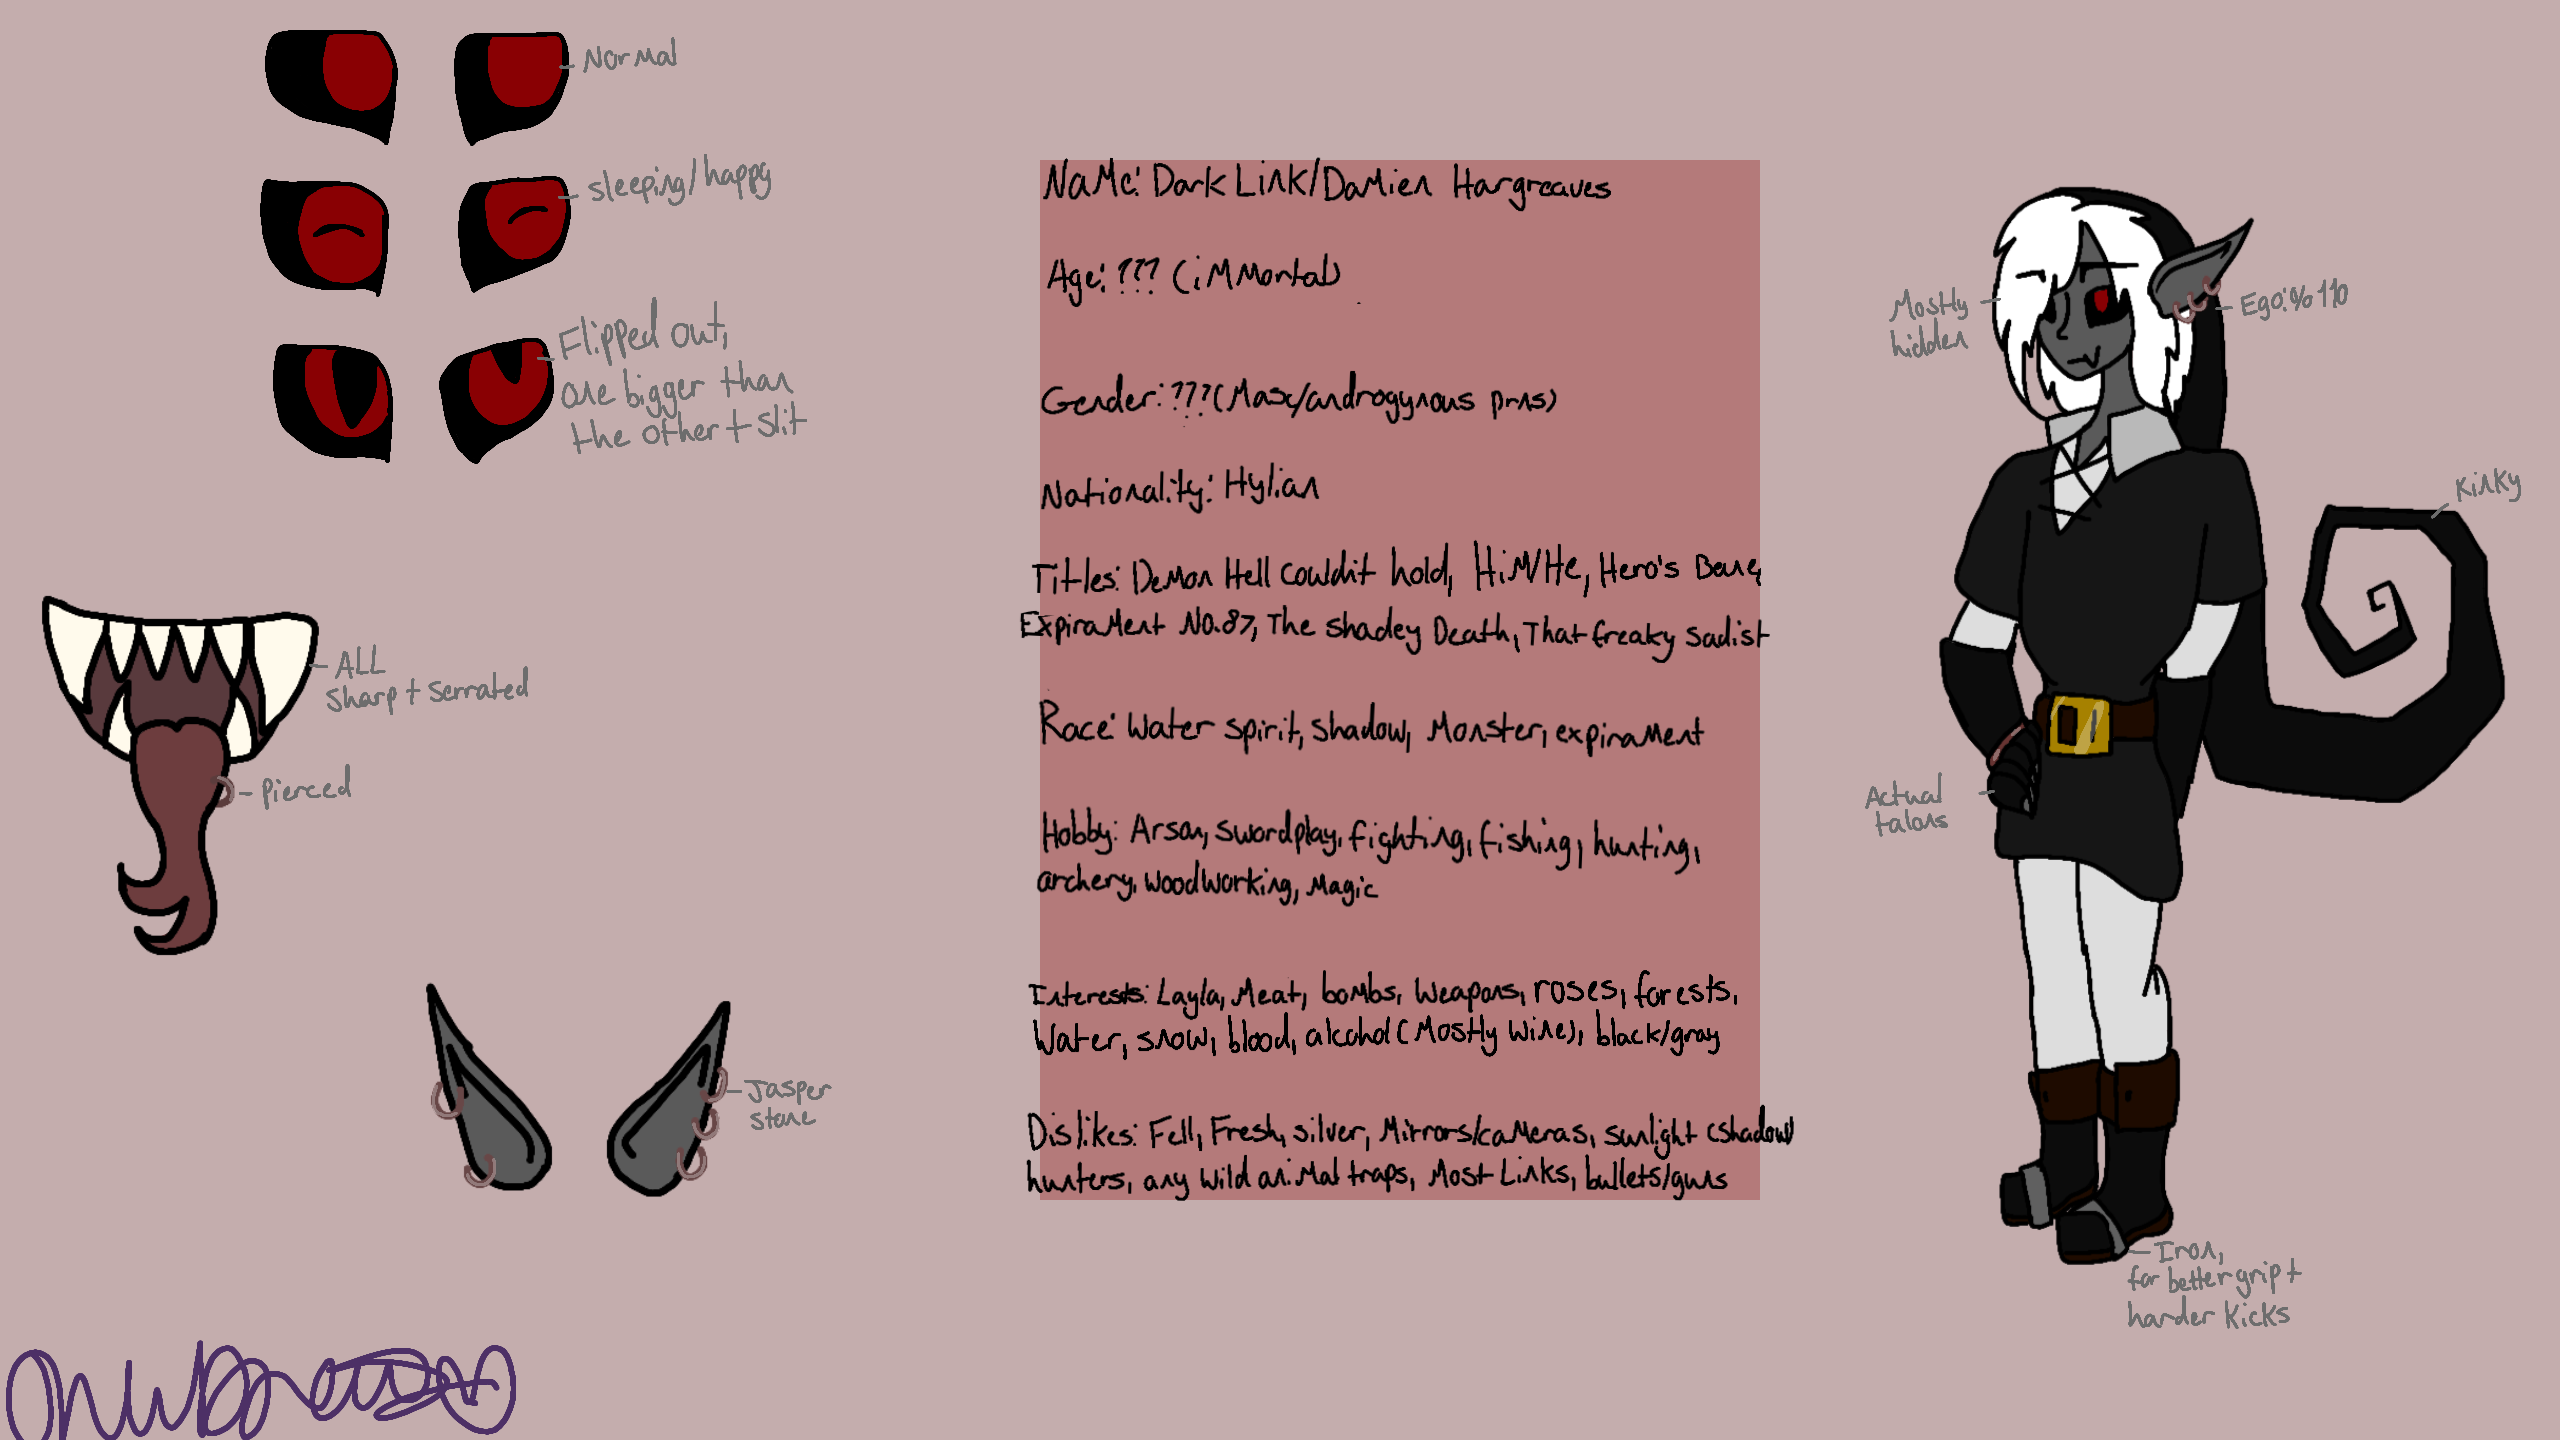 Normal
sleeping/happy
Flipped out,
one bigger than
the other + slit
ALL
sharp + serrated
Pierced
Jasper
stone
Name: Dark Link/Damien Hargreaves
Age: ??? (immortal)
Gender: ??? (Masc/androgynous prns)
Nationality: Hylian
Titles: Demon Hell Couldn't hold, HiM/He, Hero's Bane,
Expirament No.87, The shadey Death, That freaky sadist
Race: Water spirit, shadow, Monster, expirament
Hobby: Arson, swordplay, fighting, fishing, hunting,
archery, woodworking, Magic
Interests: Layla, Meat, bombs, Weapons, roses, forests,
Water, snow, blood, alcohol (Mostly Wine), black/gray
Dislikes: Fell, Fresh, silver, Mirrors/cameras, sunlight (shadow)
hunters, any wild animal traps, Most Links, bullets/guns
Mostly
hidden
Ego:%110
Kinky
Actual
talons
Iron,
for better grip +
harder kicks